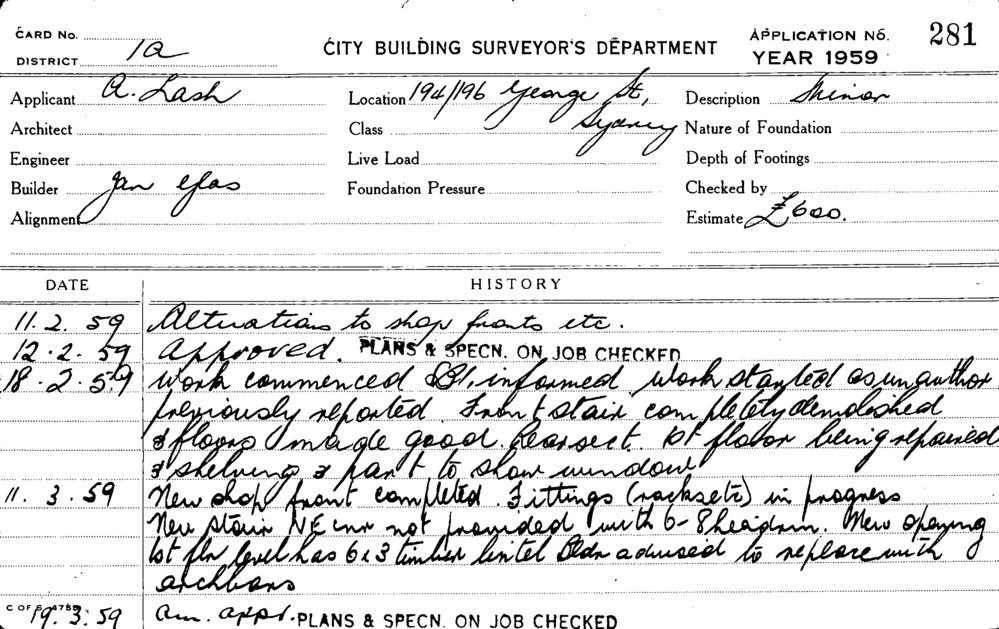 CARD No.
DISTRICT 1a
CITY BUILDING SURVEYOR'S DEPARTMENT
APPLICATION No. 281
YEAR 1959
Applicant A. Lash
Location 194/196 George St,
Sydney
Description Minor
Architect
Class
Nature of Foundation
Engineer
Live Load
Depth of Footings
Builder Jan
Foundation Pressure
Checked by
Alignment
Estimate £600.
DATE HISTORY
11.2.59 Alterations to shop fronts etc.
12.2.59 Approved. PLANS & SPECN. ON JOB CHECKED
18.2.59 Work commenced informed work started as unauthor
previously reported Front stair completely demolished
& floors made good. Rear sect. 1st floor being repaired
& shelving & part to show window
11.3.59 New shop front completed. Fittings (racks etc) in progress
New stair NE cnr not provided with 6-8 headrm. New opening
1st flr level has 6x3 timber lintel Bldr advised to replace with
archbars
C OF S 4755
19.3.59 Am. appd. PLANS & SPECN. ON JOB CHECKED